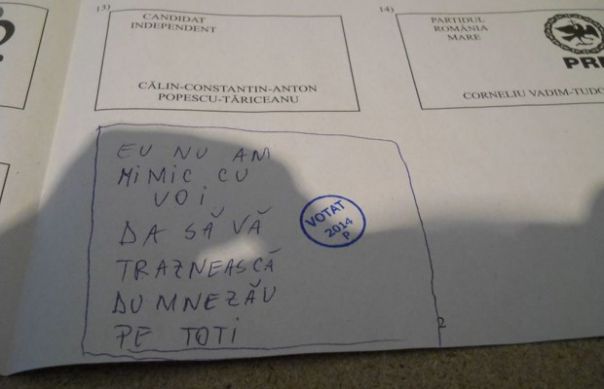 13)
CANDIDAT
INDEPENDENT
CĂLIN-CONSTANTIN-ANTON
POPESCU-TĂRICEANU
14)
PARTIDUL
ROMÂNIA
MARE
CORNELIU VADIM-TUDO
EU NU AM
MIMIC CU
VOI
DA SĂ VĂ
TRAZNEASCĂ
DUMNEZĂU
PE TOTI
VOTAT
2014
P
2